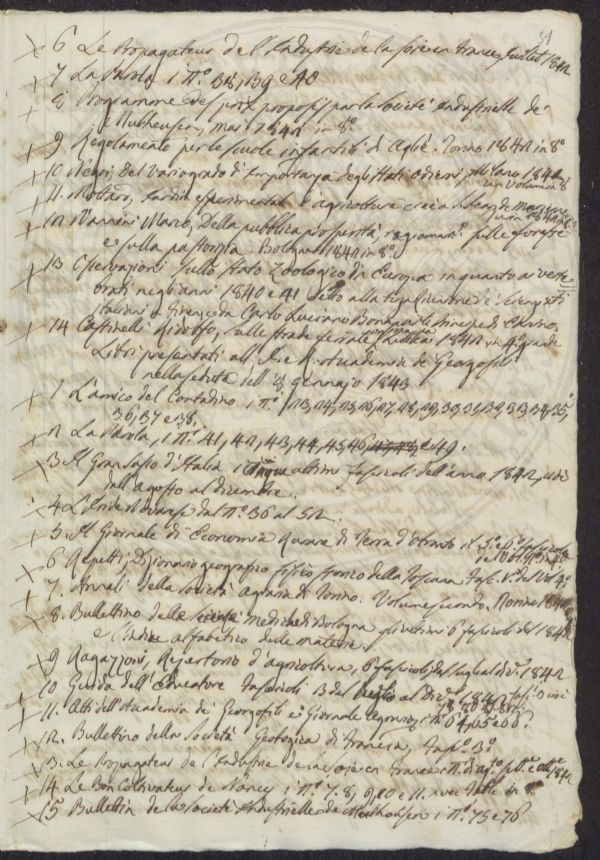 31
6 Le Propagateur de l'Industrie de la Soie en France, Juillet 1842
7 La Parola i n.° 38, 39 e 40
8 Programme des prix proposés par la Société Industrielle de
Mulhausen, mai 1842 in 8°
9 Regolamento per le scuole infantili di Agliè. Torino 1842 in 8°
10 Negri, Del vario grado d'importanza degli Stati odierni, Milano 1842
un volume in 8°
11 Mottard, sperimental d'agriculture
12 Nannini Marco, Della pubblica prosperità, ragionam.° sulle foreste
e sulla pastorizia. Bologna 1842 in 8°
13 Osservazioni sullo stato Zoologico di Europa in quanto ai verte=
brati negli anni 1840 e 41 letto alla terza Riunione de' scienziati
italiani a Firenze da Carlo Luciano Bonaparte Principe di Canino
14 Castinelli Ridolfo, sulle strade ferrate 1842 in 4° grande
Libri presentati all' I. e R. Accademia de' Georgofili
nella seduta del 8 gennajo 1843
1 L'amico del Contadino i n.° 13, 14, 15, 16, 17, 18, 19, 30, 31, 32, 33, 34, 35,
36, 37 e 38.
2 La Parola, i n.° 41, 42, 43, 44, 45, 46, 47, 48, e 49.
3 Il Gran Sasso d'Italia i cinque ultimi fascicoli dell'anno 1842, cioè
dall'agosto al dicembre.
4 L'Iride Novarese dal n.° 36 al 52.
5. Il Giornale di Economia Rurale di Terra d'Otranto il 5.° e 6.° fascicolo
6 Repetti, Dizionario geografico fisico storico della Toscana fasc. V.° del Vol. 4.°
7. Annali della Società agraria di Torino. Volume secondo, Torino 1842
8. Bullettino delle scienze mediche di Bologna gli ultimi 6 fascicoli del 1842
e l'indice alfabetico delle materie.
9 Ragazzoni, Repertorio d'agricoltura, 6 fascicoli dal luglio al di.e 1842
10 Guida dell'Educatore fascicoli 3 del luglio al dic.e 1842
11. Atti dell'Accademia de' Georgofili e Giornale agrario, i n.° 64, 65 e 66.
12. Bullettino della Società Geologica di Francia, fasc.° 3.°
13. Le Propagateur de l'Industrie de la Soie en France i n.° di ag.° sett.e e ott.e 1842
14 Le Bon Cultivateur de Nancy i n.° 7. 8, 9, 10 e 11.
15 Bulletin de la Société Industrielle de Mulhausen i n.° 75 e 76